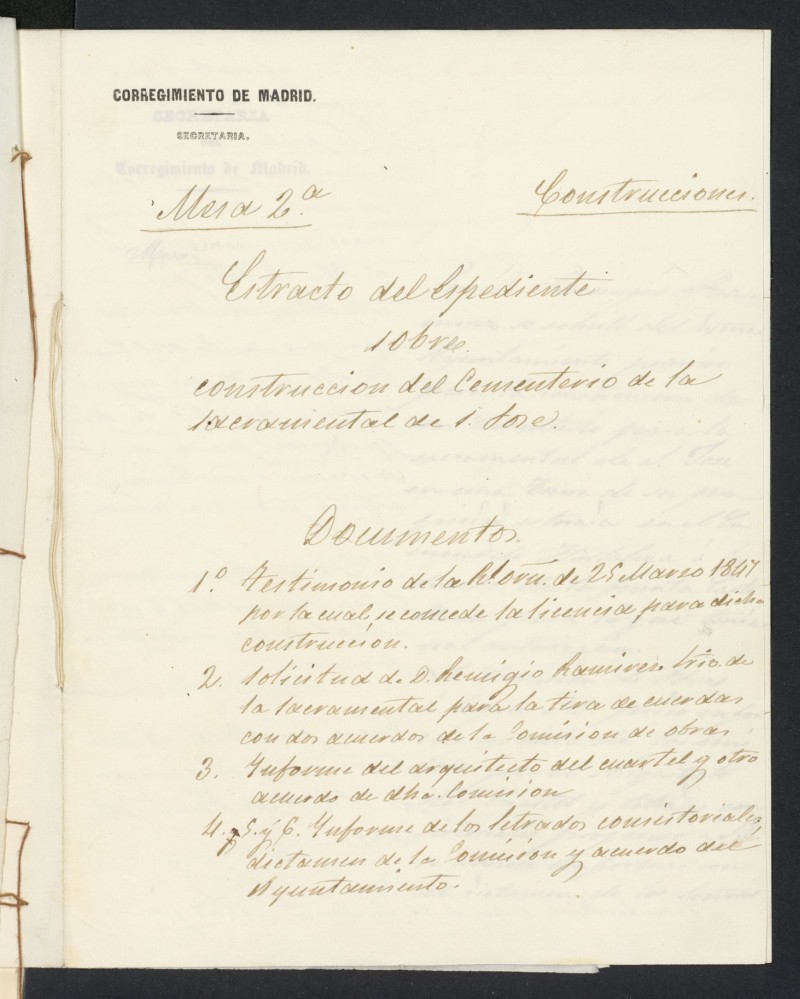 CORREGIMIENTO DE MADRID.
SECRETARIA.
Mesa 2.ª
Construcciones.
Estracto del Espediente
sobre
construccion del Cementerio de la
sacramental de S. José.
Documentos.
1.º Testimonio de la Rl. orn. de 25 Marzo 1847
por la cual, se concede la licencia para dicha
construcción.
2. Solicitud de D. Remigio Ramirez Srio. de
la Sacramental para la tira de cuerdas
con dos acuerdos de la Comision de obras
3. Informe del arquitecto del cuartel y otro
acuerdo de dha. Comision
4. 5. y 6. Informe de los letrados consistoriales,
dictamen de la Comision y acuerdo del
Ayuntamiento.